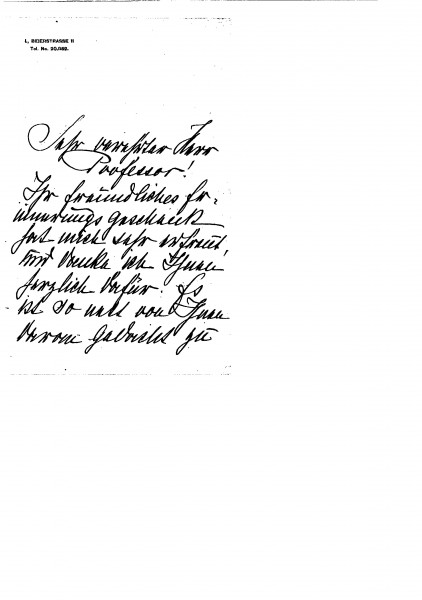 I., BEIERSTRASSE 11
Tel. No. 20/562.
Sehr verehrter Herr
Professor!
Ihr freundliches Er-
innerungsgeschenk
hat mich sehr erfreut,
und danke ich Ihnen
herzlich dafür. Es
ist so nett von Ihnen
daran gedacht zu